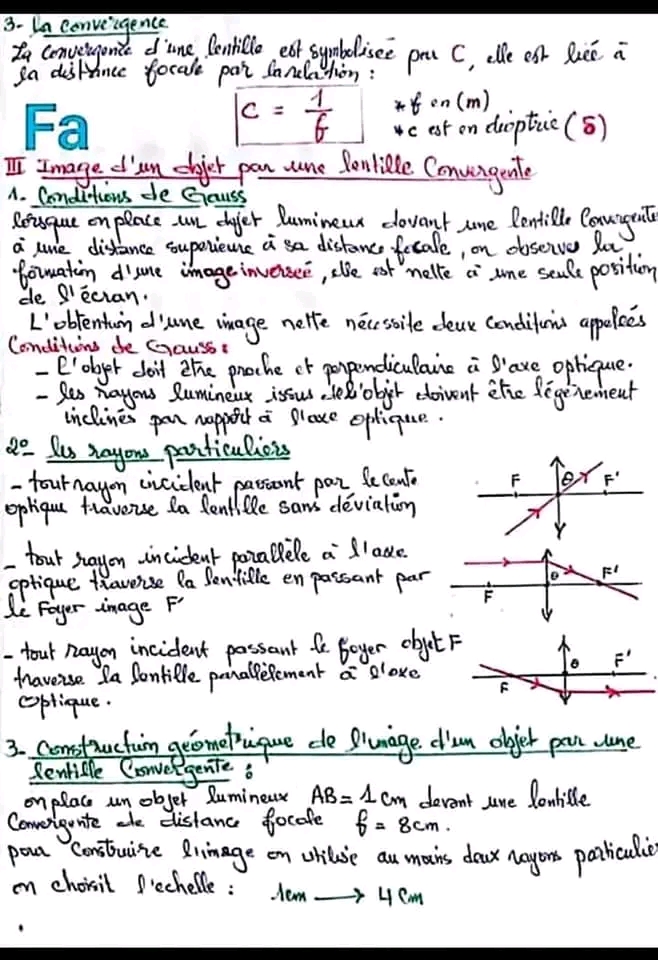 3- La convergence
La convergence d'une lentille est symbolisée par C, elle est liée à
sa distance focale par la relation :
C = 1/f
* f en (m)
* c est en dioptrie (δ)
Fa
III Image d'un objet par une lentille Convergente
1- Conditions de Gauss
lorsque on place un objet lumineux devant une lentille Convergente
à une distance superieure à sa distance focale, on observe la
formation d'une image inversée, elle est nette à une seule position
de l'écran.
L'obtention d'une image nette nécessite deux Conditions appelées
Conditions de Gauss :
- L'objet doit être proche et perpendiculaire à l'axe optique.
- les rayons lumineux issus de l'objet doivent être légèrement
inclinés par rapport à l'axe optique.
2° les rayons particuliers
- tout rayon incident passant par le cente
optique traverse la lentille sans déviation
F O F'
- tout rayon incident parallèle à l'axe
optique traverse la lentille en passant par
le Foyer image F'
F O F'
- tout rayon incident passant le foyer objet F
traverse la lentille parallèlement à l'axe
optique.
F O F'
3- Construction géometrique de l'image d'un objet par une
lentille Convergente :
on place un objet lumineux AB = 1cm devant une lentille
Convergente de distance focale f = 8cm.
pour Construire l'image on utilise au moins deux rayons particulier
on choisit l'echelle : 1cm → 4cm